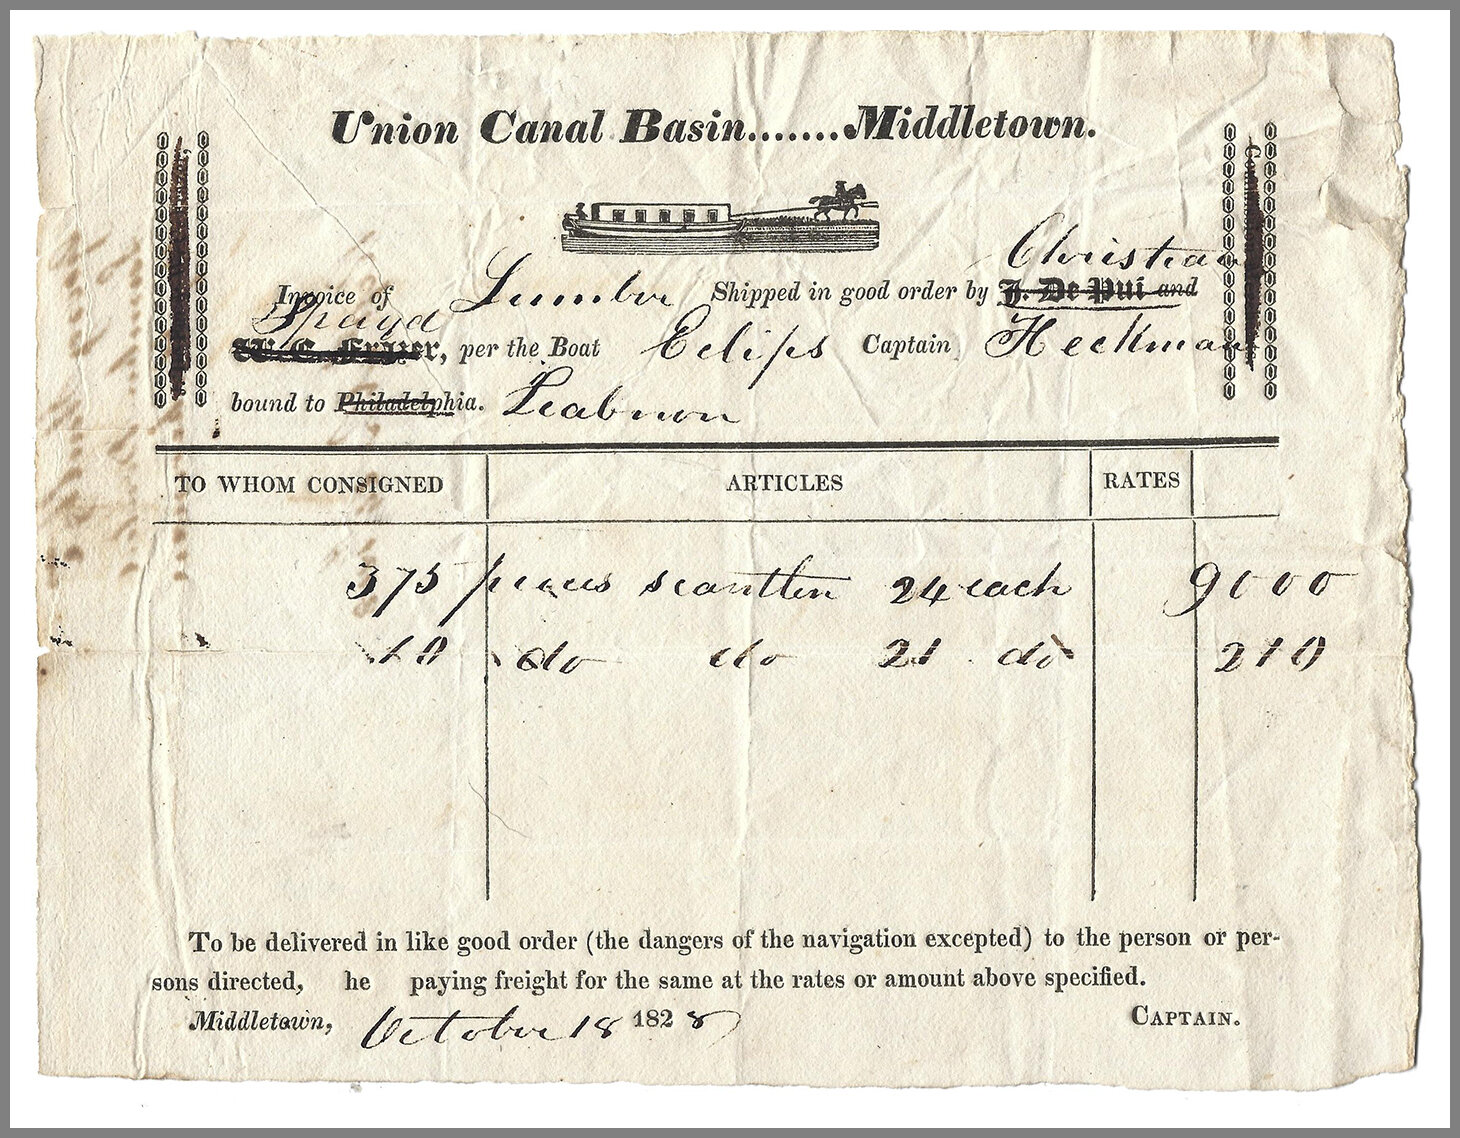 Union Canal Basin.......Middletown.
Christian
Invoice of Lumber Shipped in good order by J. De Pui and
Spayd
W. C. Frazer, per the Boat Eclips Captain Heckman
bound to Philadelphia. Leabnon
TO WHOM CONSIGNED ARTICLES RATES
375 pieces scantlin 24 each 9000
10 do do 21 do 210
To be delivered in like good order (the dangers of the navigation excepted) to the person or per-
sons directed, he paying freight for the same at the rates or amount above specified.
Middletown, October 18 1828 CAPTAIN.